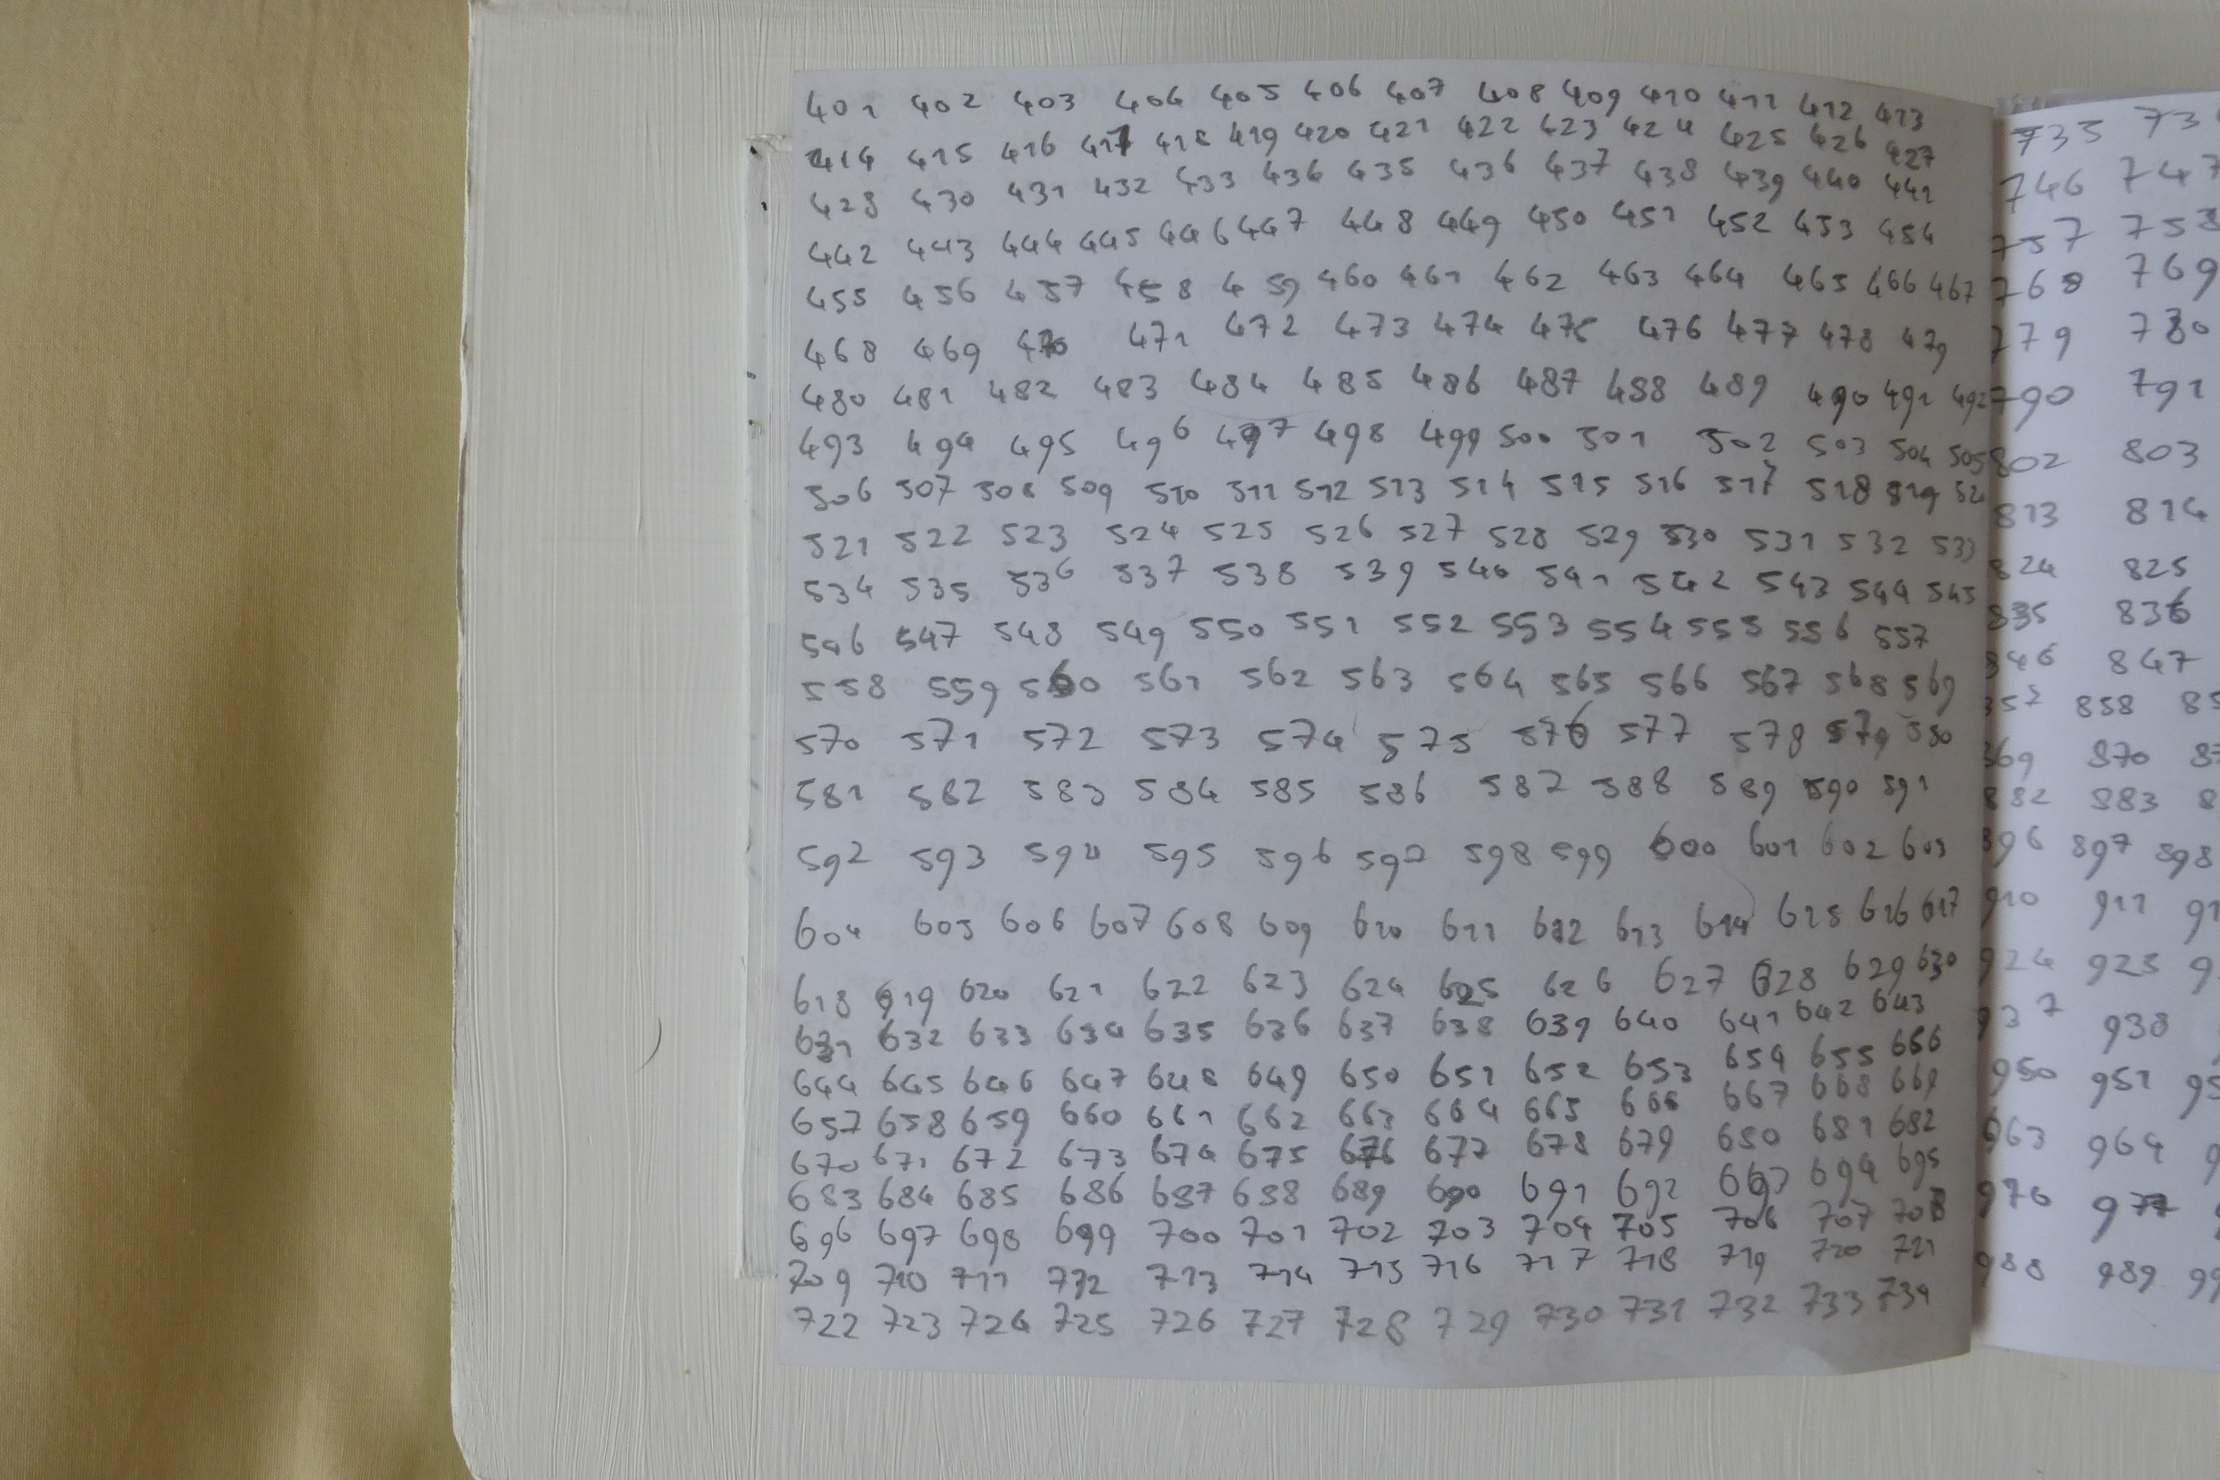 401 402 403 404 405 406 407 408 409 410 411 412 413
414 415 416 417 418 419 420 421 422 423 424 425 426 427
428 430 431 432 433 434 435 436 437 438 439 440 441
442 443 444 445 446 447 448 449 450 451 452 453 454
455 456 457 458 459 460 461 462 463 464 465 466 467
468 469 470 471 472 473 474 475 476 477 478 479
480 481 482 483 484 485 486 487 488 489 490 491 492
493 494 495 496 497 498 499 500 501 502 503 504 505
506 507 508 509 510 511 512 513 514 515 516 517 518 519 520
521 522 523 524 525 526 527 528 529 530 531 532 533
534 535 536 537 538 539 540 541 542 543 544 545
546 547 548 549 550 551 552 553 554 555 556 557
558 559 560 561 562 563 564 565 566 567 568 569
570 571 572 573 574 575 576 577 578 579 580
581 582 583 584 585 586 587 588 589 590 591
592 593 594 595 596 597 598 599 600 601 602 603
604 605 606 607 608 609 610 611 612 613 614 615 616 617
618 619 620 621 622 623 624 625 626 627 628 629 630
631 632 633 634 635 636 637 638 639 640 641 642 643
644 645 646 647 648 649 650 651 652 653 654 655 656
657 658 659 660 661 662 663 664 665 666 667 668 669
670 671 672 673 674 675 676 677 678 679 680 681 682
683 684 685 686 687 688 689 690 691 692 693 694 695
696 697 698 699 700 701 702 703 704 705 706 707 708
709 710 711 712 713 714 715 716 717 718 719 720 721
722 723 724 725 726 727 728 729 730 731 732 733 734
735
746 747
757 758
768 769
779 780
790 791
802 803
813 814
824 825
835 836
846 847
857 858
869 870
882 883
896 897 898
910 911
924 925
937 938
950 951
963 964
976 977
988 989